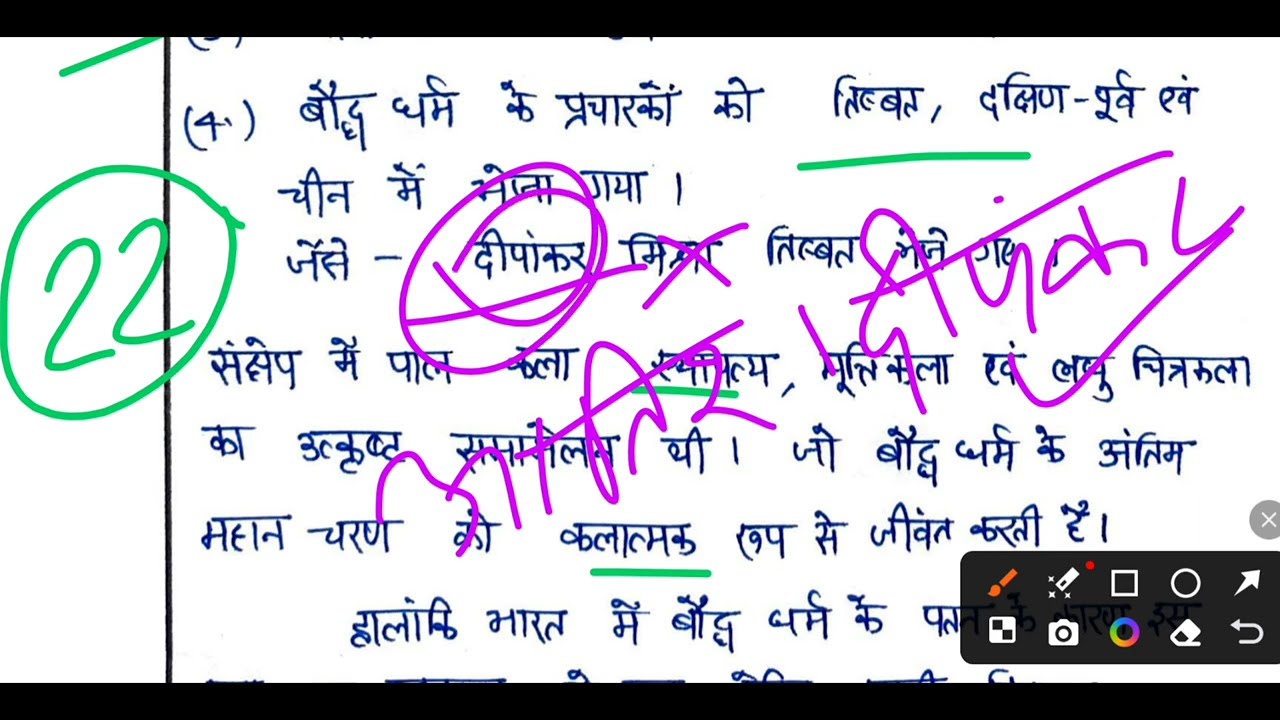 (4.) बौद्ध धर्म के प्रचारकों को तिब्बत, दक्षिण-पूर्व एवं
चीन में भेजा गया।
जैसे - दीपांकर मिश्रा तिब्बत भेजे गए।
22
दीपंकर
संक्षेप में पाल कला स्थापत्य, मूर्तिकला एवं लघु चित्रकला
का उत्कृष्ट थी। जो बौद्ध धर्म के अंतिम
महान चरण को कलात्मक रूप से जीवंत करती है।
हालांकि भारत में बौद्ध धर्म के पतन के कारण इस